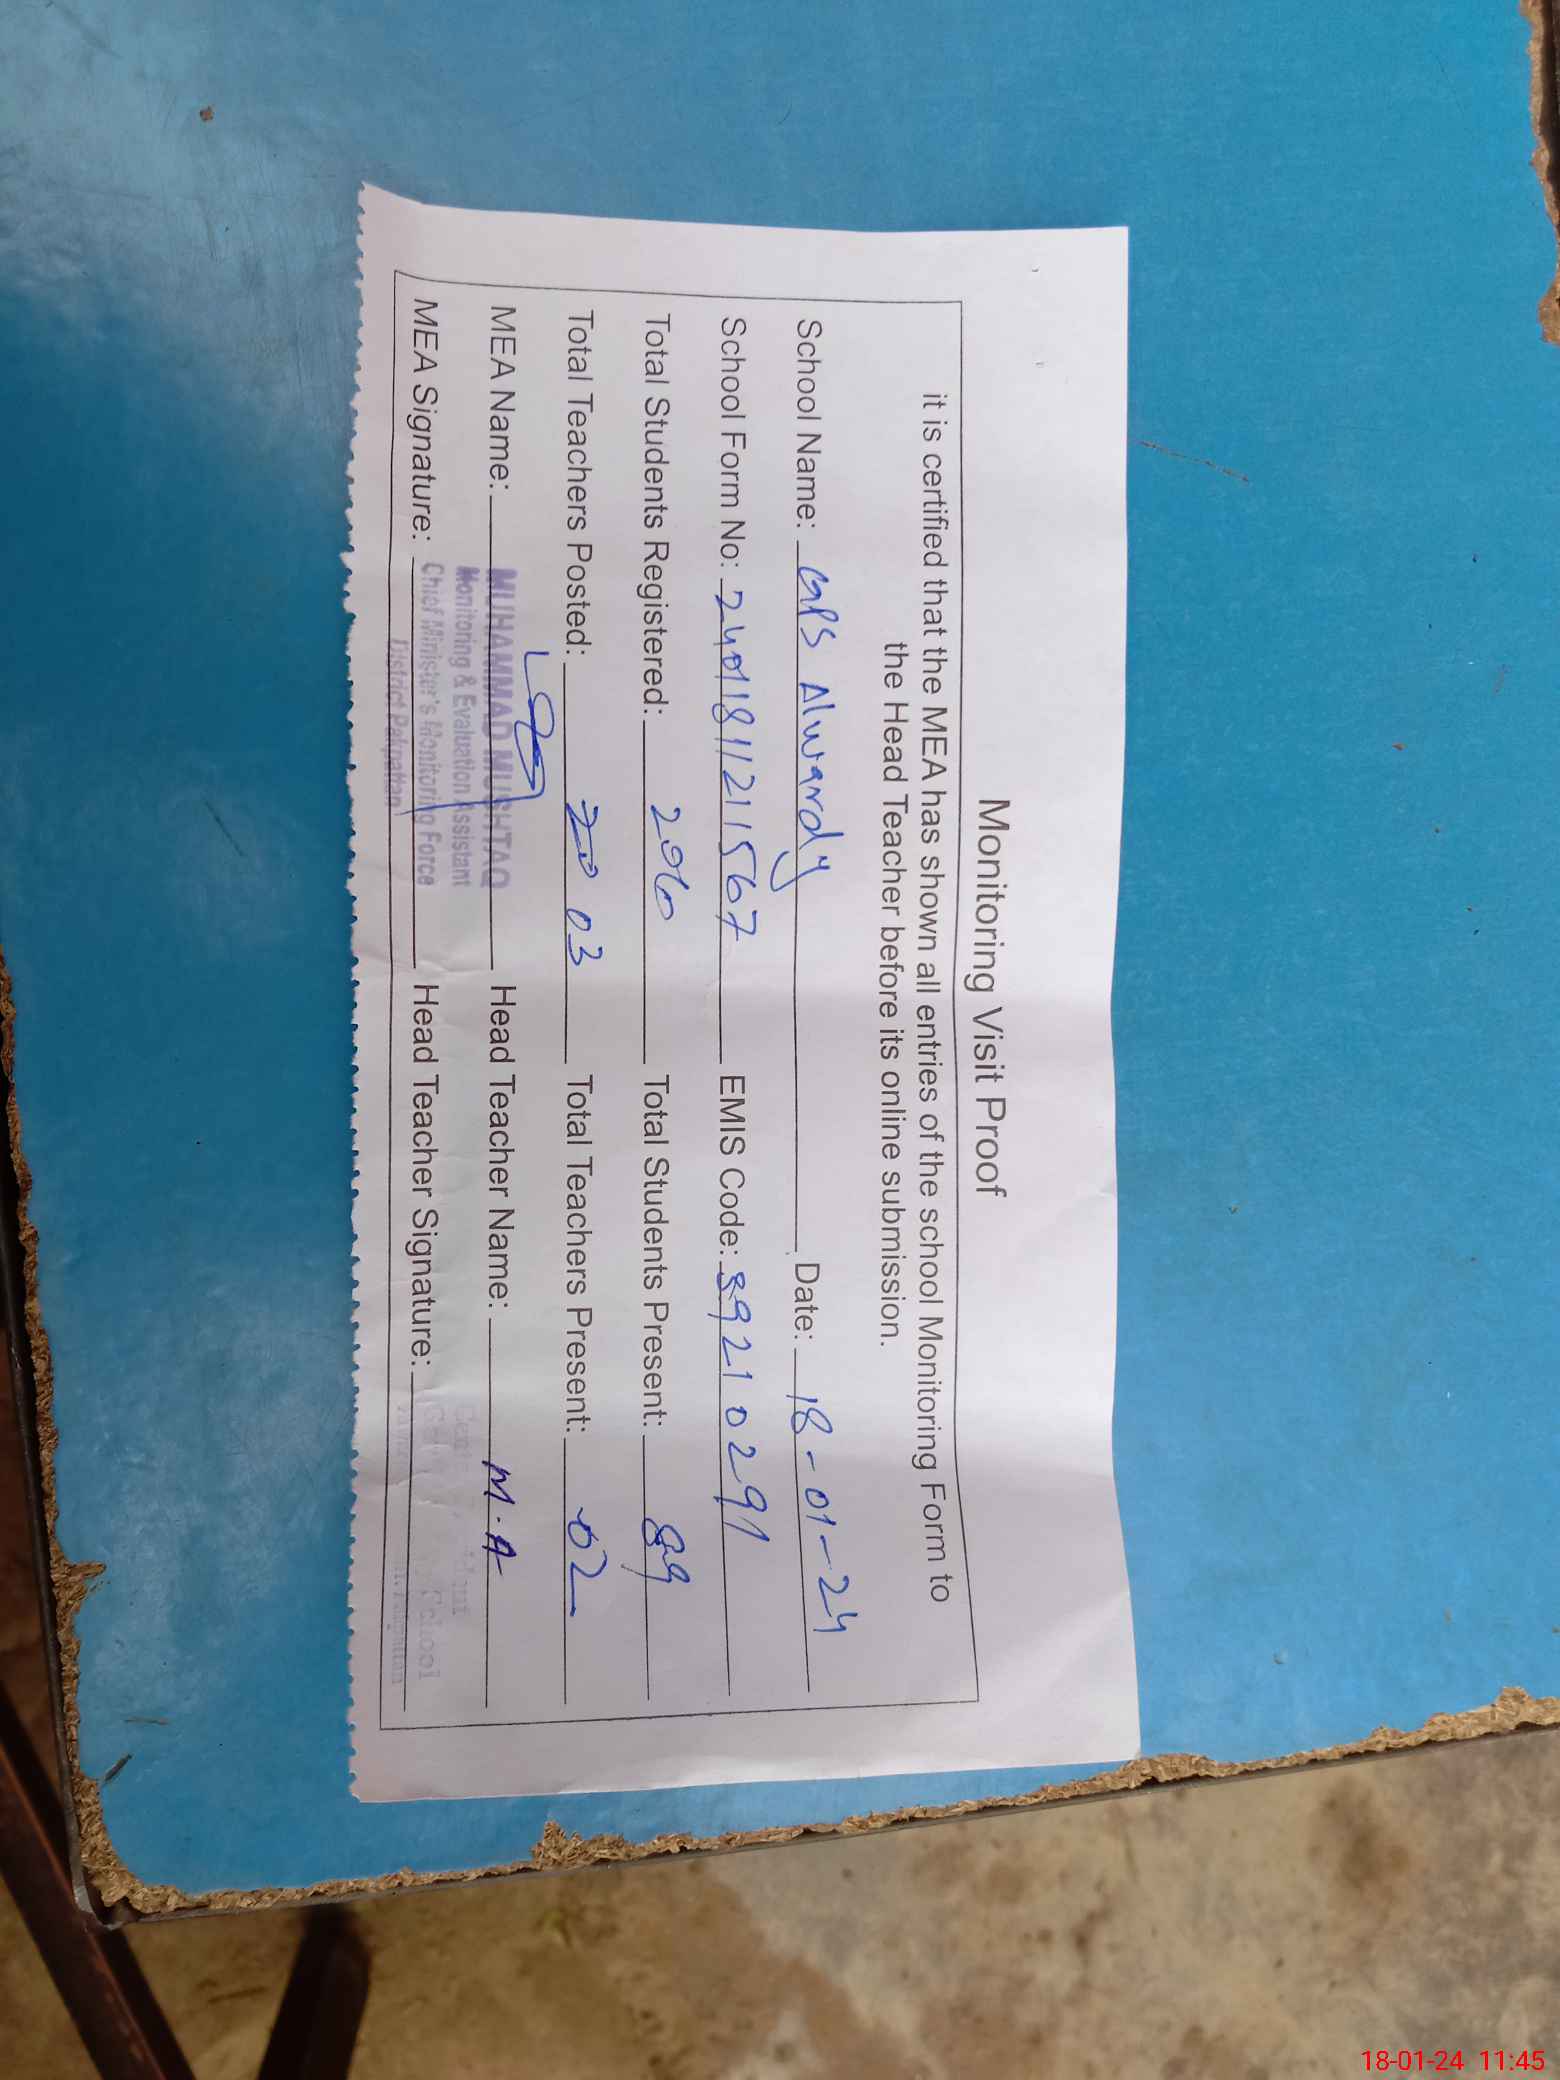 Monitoring Visit Proof
it is certified that the MEA has shown all entries of the school Monitoring Form to
the Head Teacher before its online submission.
School Name: GPS Alwardy Date: 18-01-24
School Form No: 2401811211567 EMIS Code: 39210291
Total Students Registered: Total Students Present: 89
Total Teachers Posted: 03 Total Teachers Present: 02
MEA Name: MUHAMMAD MUSHTAQ Head Teacher Name: M.A
Monitoring & Evaluation Assistant
MEA Signature: Chief Minister's Monitoring Force Head Teacher Signature: School
District Pakpattan
18-01-24 11:45